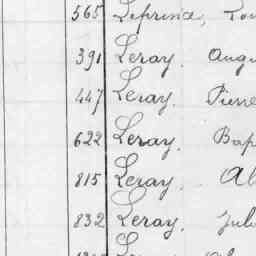 565 Leprince, Lou
391 Leray. Augu
447 Leray. Pierre
622 Leray. Bap
815 Leray. Al
832 Leray. Jul